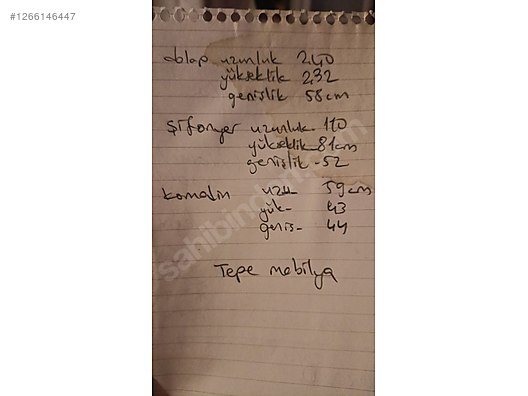 #1266146447
dolap uzunluk 2.40
yükseklik 2.32
genişlik 58cm
Şifonyer uzunluk-110
yükseklik-81cm
genişlik-52
komodin uzu- 59cm
yük- 43
geniş- 44
Tepe mobilya
sahibinden.com